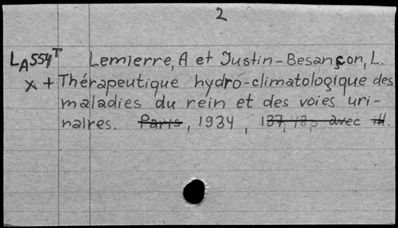 2
LA554T Lemierre, A et Justin-Besançon, L.
x + Thérapeutique hydro-climatologique des
maladies du rein et des voies uri-
naires. Paris, 1934, 137, 18, avec ill.